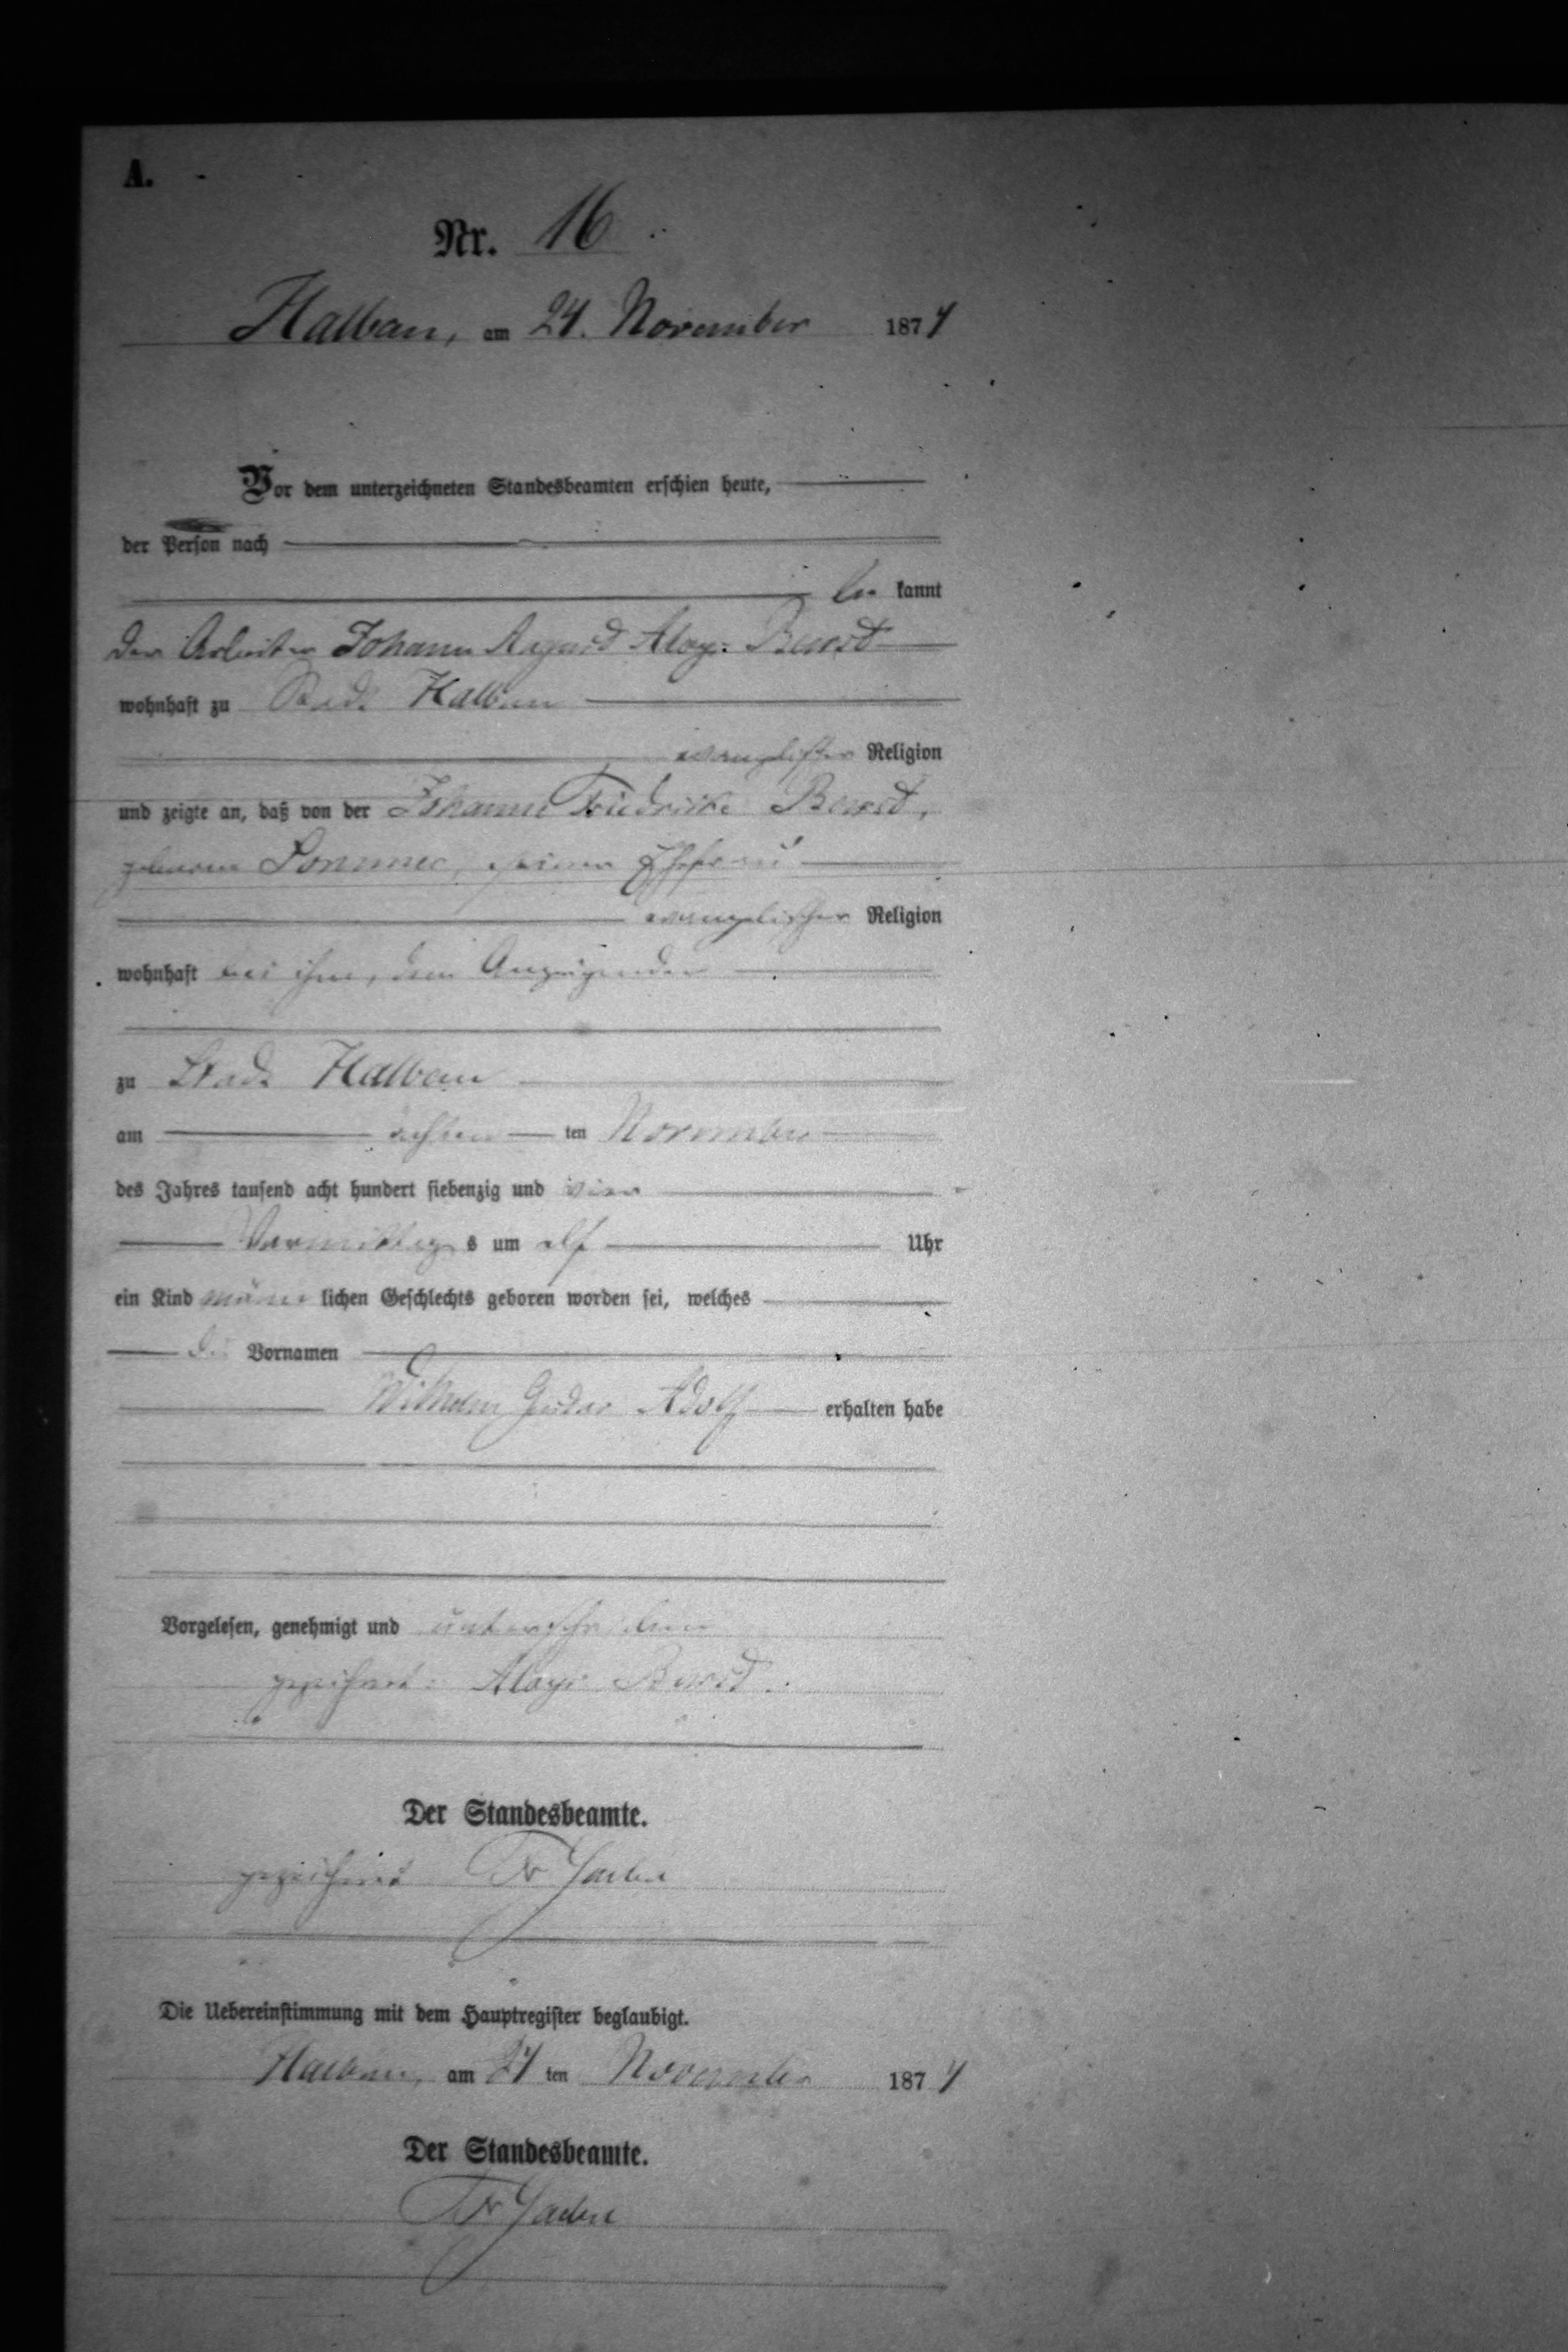 A.
Nr. 16
Halbau, am 24. November 1874
Vor dem unterzeichneten Standesbeamten erschien heute,
der Person nach
be kannt
der Arbeiter Johann August Aloys
wohnhaft zu Stadt Halbau
evangelischer Religion
und zeigte an, daß von der Johanne Friedricke
geborene Sommer, seiner Ehefrau
evangelischer Religion
wohnhaft bei ihm, dem Anzeigenden
zu Stadt Halbau
am achten ten November
des Jahres tausend acht hundert siebenzig und vier
Vormittag s um elf Uhr
ein Kind männ lichen Geschlechts geboren worden sei, welches
die Vornamen
Wilhelm Gustav Adolf erhalten habe
Vorgelesen, genehmigt und unterschrieben
gezeichnet: Aloys
Der Standesbeamte.
gezeichnet
Die Uebereinstimmung mit dem Hauptregister beglaubigt.
Halbau, am 24 ten November 1874
Der Standesbeamte.